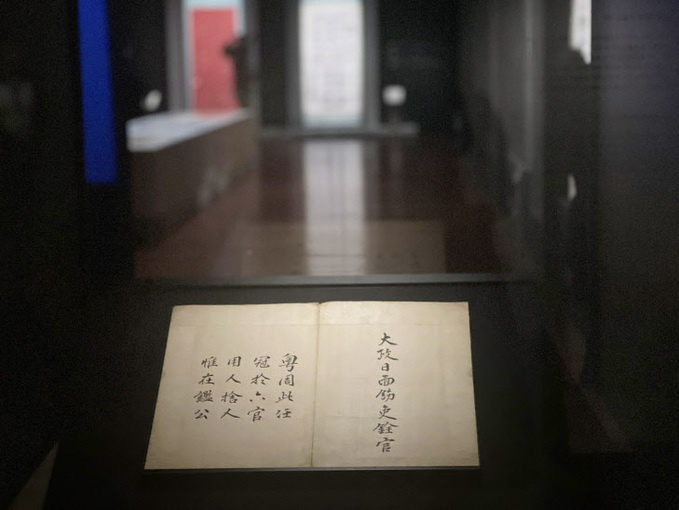 大政日面飭吏銓官
粤周此任
冠於六官
用人捨人
惟在鑑公